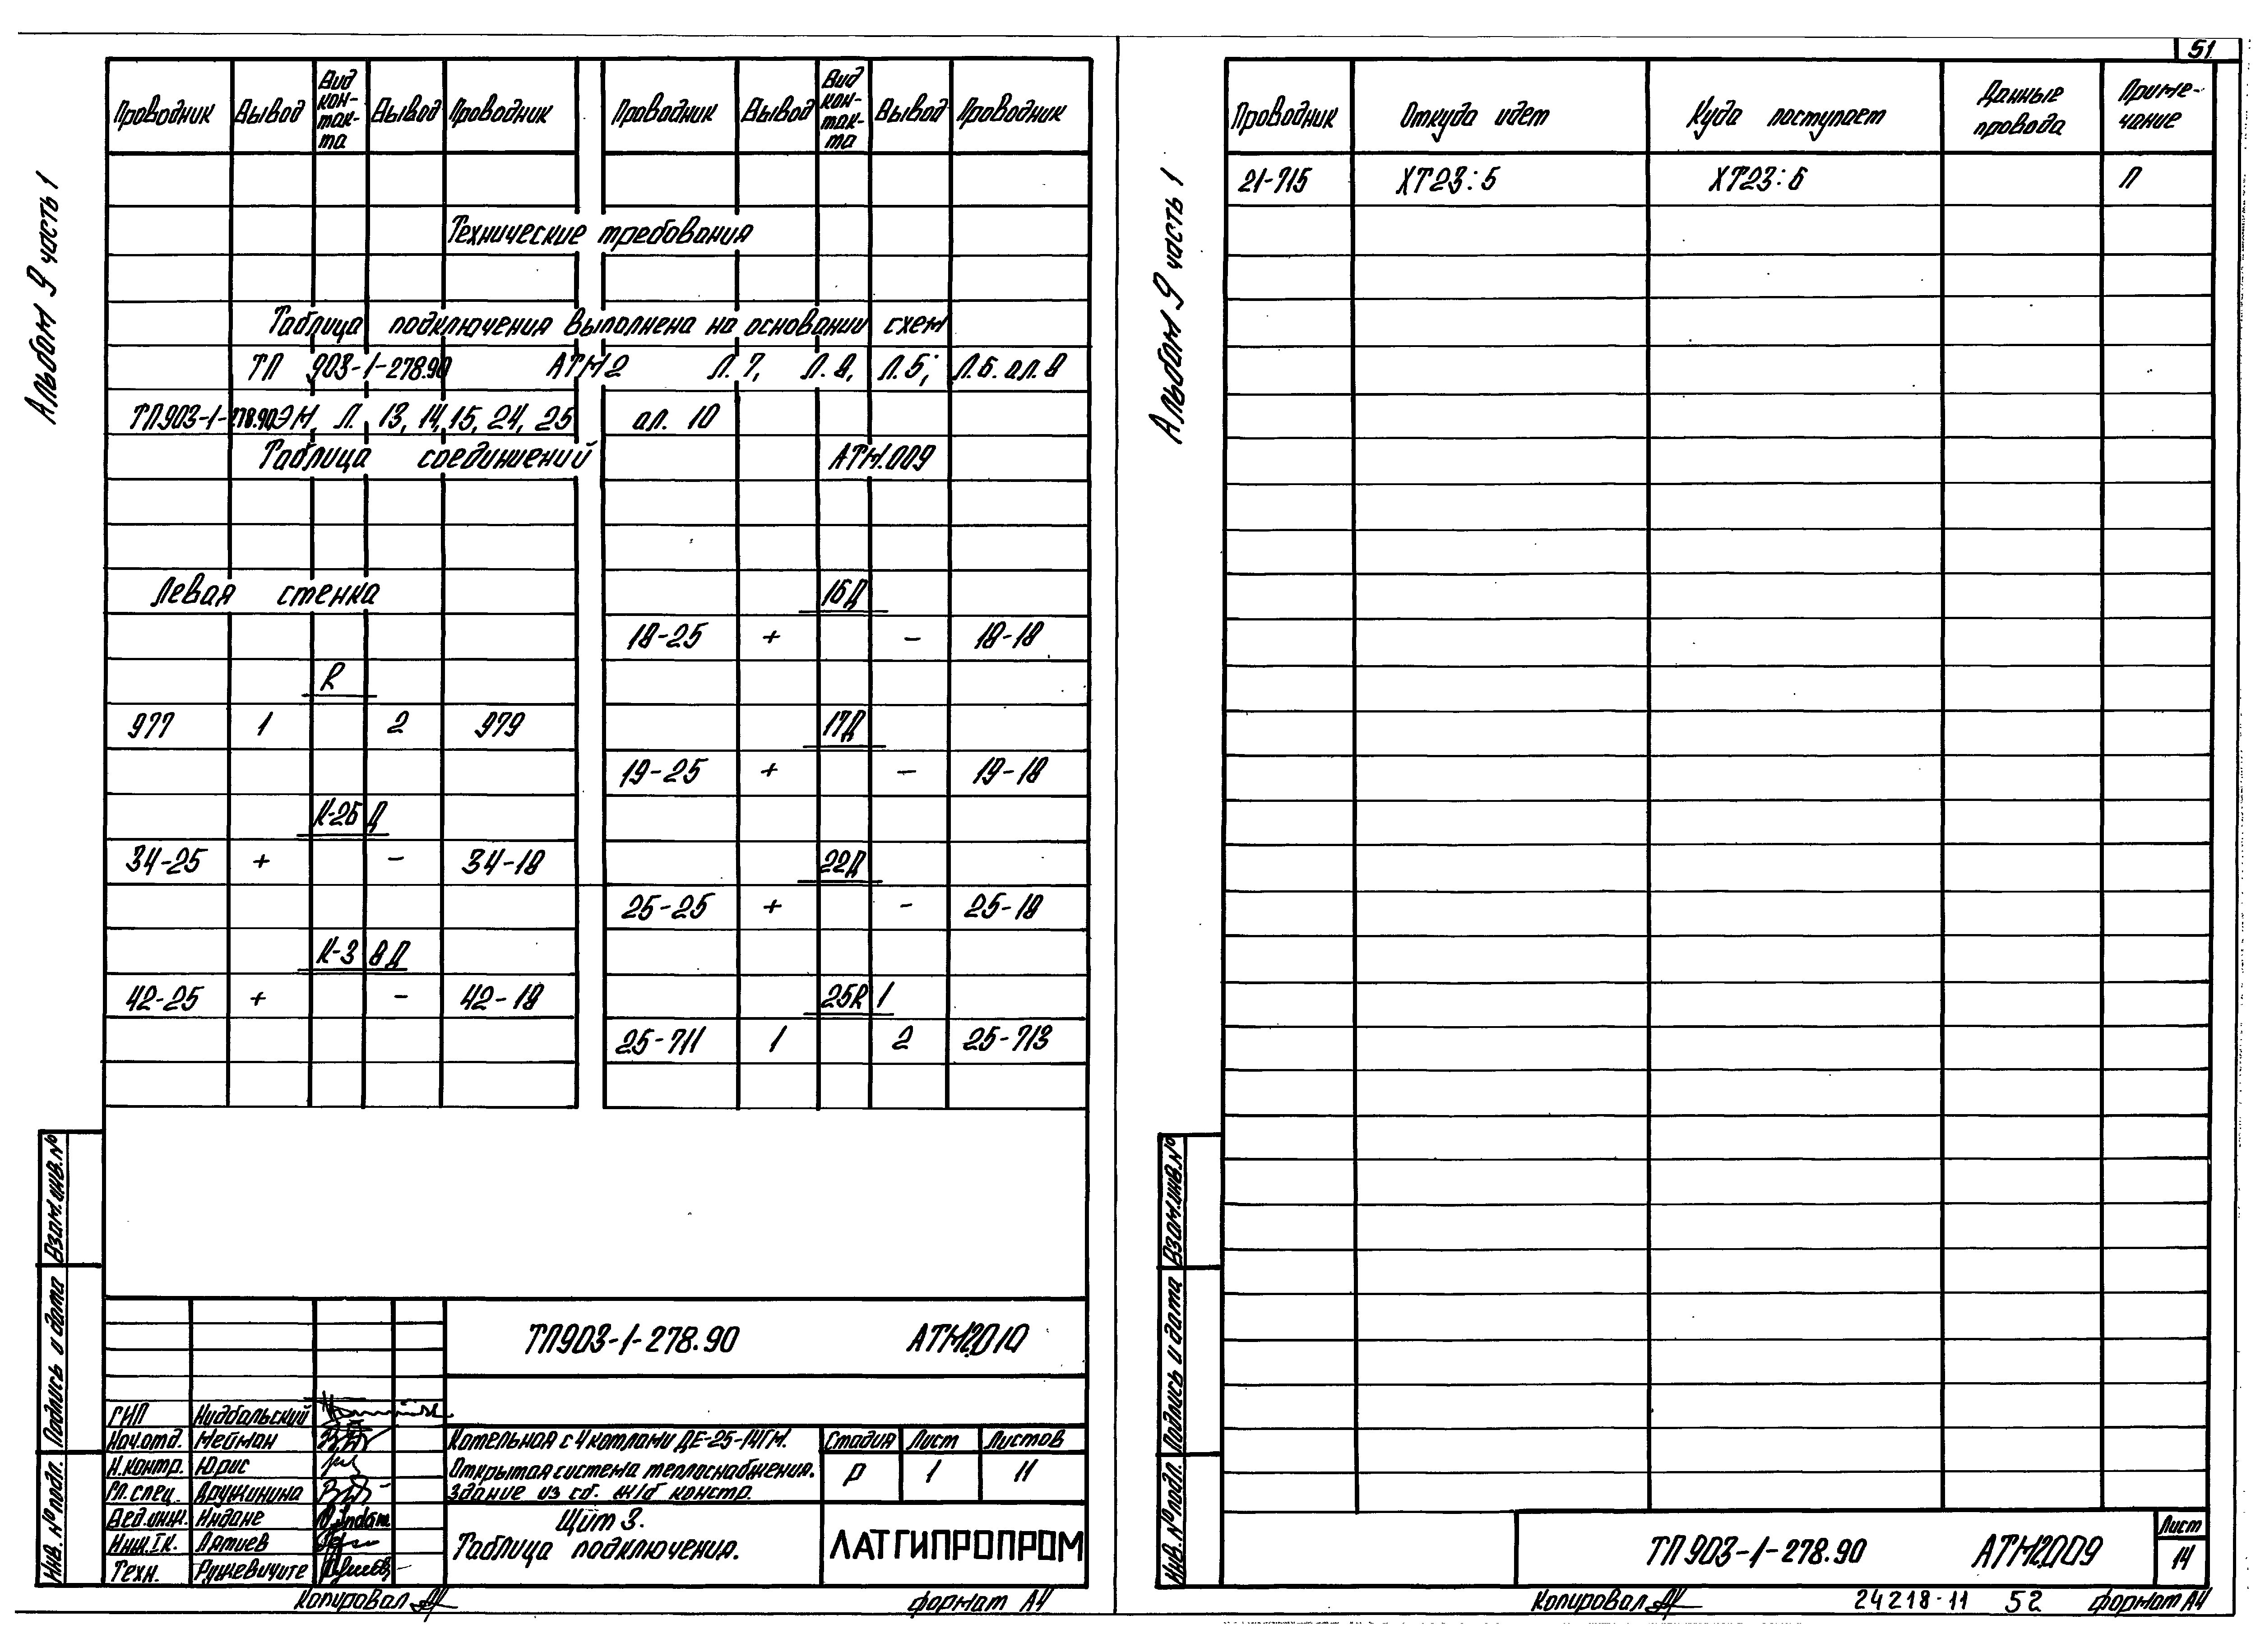 Альбом 9 часть 1
Проводник Вывод Вид кон-так-та Вывод Проводник Проводник Вывод Вид кон-так-та Вывод Проводник
Технические требования
Таблица подключения выполнена на основании схем
ТП 903-1-278.90 АТМ2 Л.7, Л.8, Л.5; Л.6. ал.8
ТП903-1-278.90ЭМ, Л. 13, 14, 15, 24, 25 ал. 10
Таблица соединений АТМ.009
Левая стенка 16Д
18-25 + - 18-18
R
977 1 2 979 17Д
19-25 + - 19-18
К-26Д
34-25 + - 34-18 22Д
25-25 + - 25-18
К-3 8Д
42-25 + - 42-18 25R1
25-711 1 2 25-713
Взам.инв.№
Подпись и дата
Инв.№подл.
ТП903-1-278.90 АТМ2.010
ГИП Нидбальский
Нач.отд. Мейман
Н.контр. Юрис
Гл.спец. Дружинина
Вед.инж. Индане
Инж.Iк. Лятиев
Техн. Рушевичите
Котельная с 4 котлами ДЕ-25-14ГМ.
Открытая система теплоснабжения.
Здание из сб. ж/б констр.
Стадия Лист Листов
Р 1 11
Щит 3.
Таблица подключения.
ЛАТГИПРОПРОМ
Копировал
формат А4
51
Альбом 9 часть 1
Проводник Откуда идет Куда поступает Данные провода Приме-чание
21-715 ХТ23:5 ХТ23:6 П
Взам.инв.№
Подпись и дата
Инв.№подл.
ТП903-1-278.90 АТМ2.009
Лист
14
Копировал
24218-11 52 формат А4